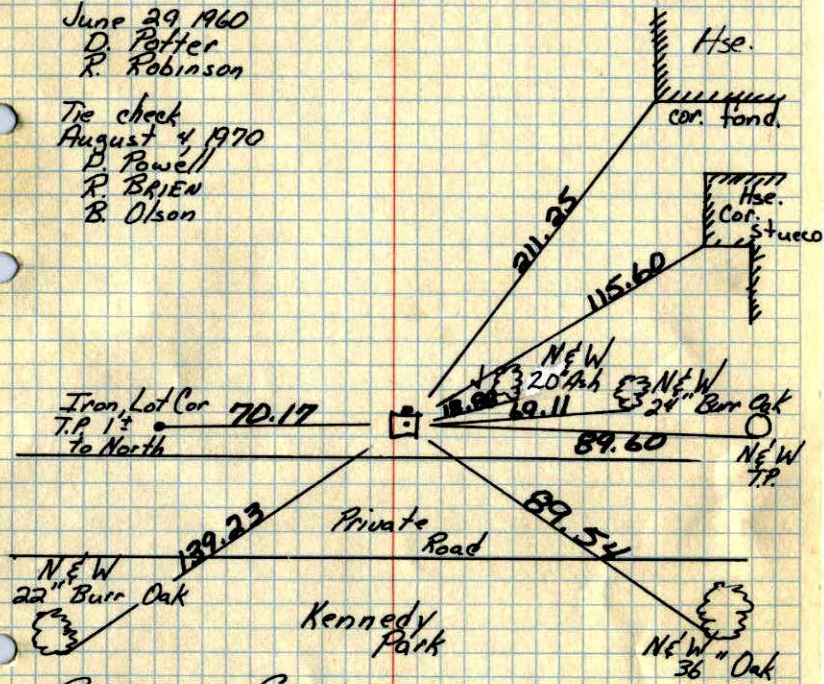 June 29 1960
D. Potter
R. Robinson
Tie check
August 4, 1970
D. Powell
R. BRIEN
B. Olson
Hse.
cor. fond.
211.25
Hse.
Cor.
Stucco
115.60
N & W
20" Ash
69.11
N & W
24" Burr Oak
89.60
N & W
T.P.
Iron, Lot Cor
T.P. 1'±
to North
70.17
139.23
89.54
Private
Road
N & W
22" Burr Oak
Kennedy
Park
N & W
36" Oak